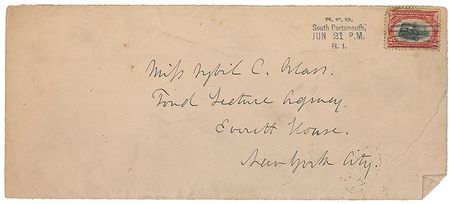 R.F.D.
South Portsmouth,
JUN 21 P.M.
R.I.
Miss Sybil C.
Pond Lecture Agency.
Everett House.
New York City.